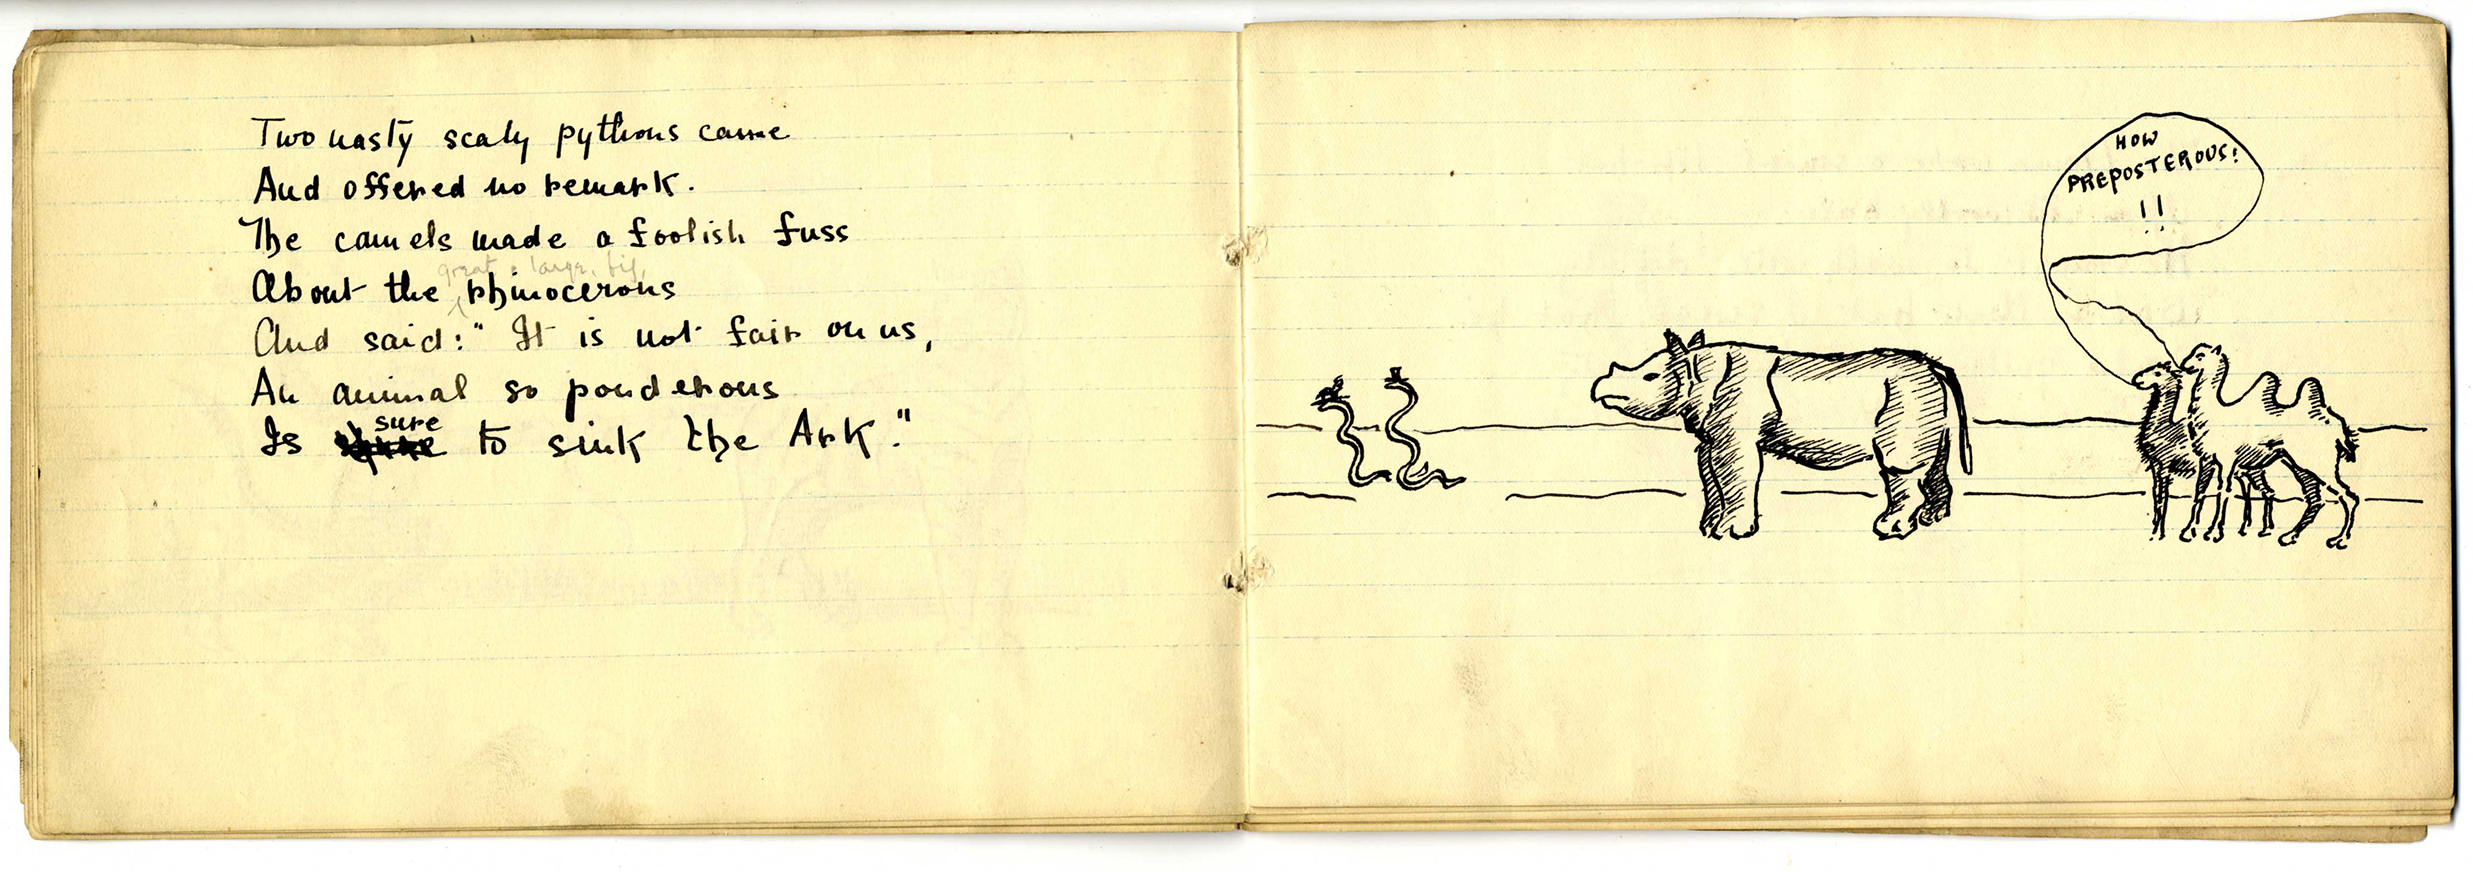 Two nasty scaly pythons came
And offered no remark.
The camels made a foolish fuss
great, large, big,
About the rhinocerous
And said: "It is not fair on us,
An animal so ponderous
sure
Is to sink the Ark."
HOW
PREPOSTEROUS!
!!